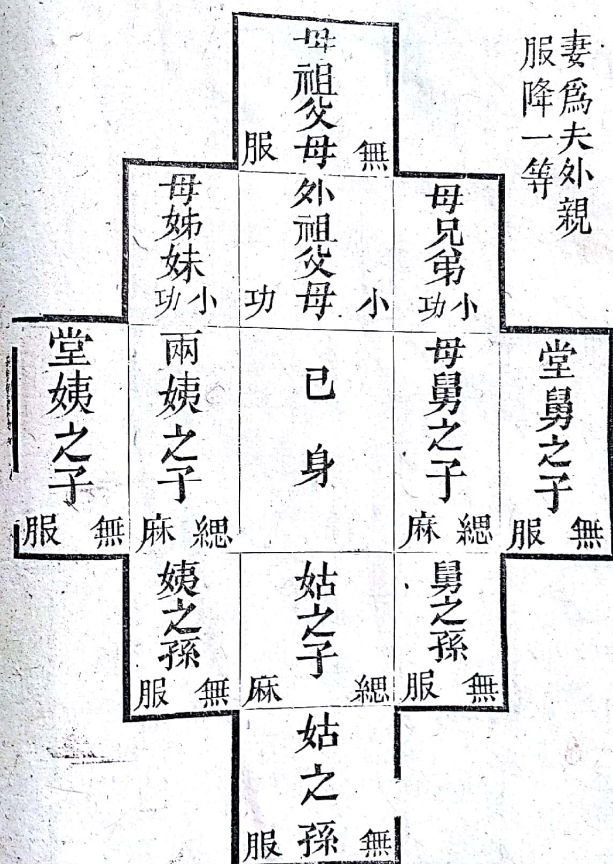 妻爲夫外親
服降一等
母祖父母
無服
母兄弟
小功
外祖父母
小功
母姊妹
小功
堂舅之子
無服
母舅之子
緦麻
已身
兩姨之子
緦麻
堂姨之子
無服
舅之孫
無服
姑之子
緦麻
姨之孫
無服
姑之孫
無服